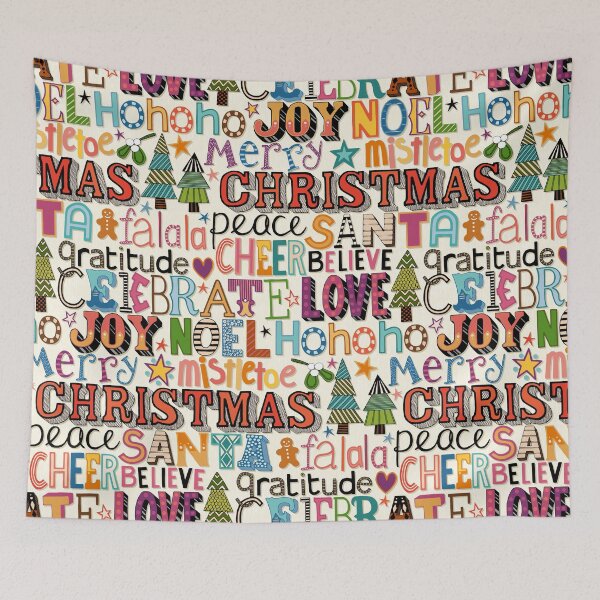 ATE LOVE CELEBRATE LOVE
OEL Hohoho JOY NOEL Hohoho
mistletoe Merry mistletoe
MAS CHRISTMAS
TA falala peace SANTA falala
gratitude CHEER BELIEVE gratitude
CELEBRATE LOVE CELEBR
HO JOY NOEL Hohoho JOY NO
Merry mistletoe Merry mistletoe
CHRISTMAS CHRIST
peace SANTA falala peace SAN
CHEER BELIEVE gratitude CHEER BELIEVE
ATE LOVE CELEBRATE LOVE